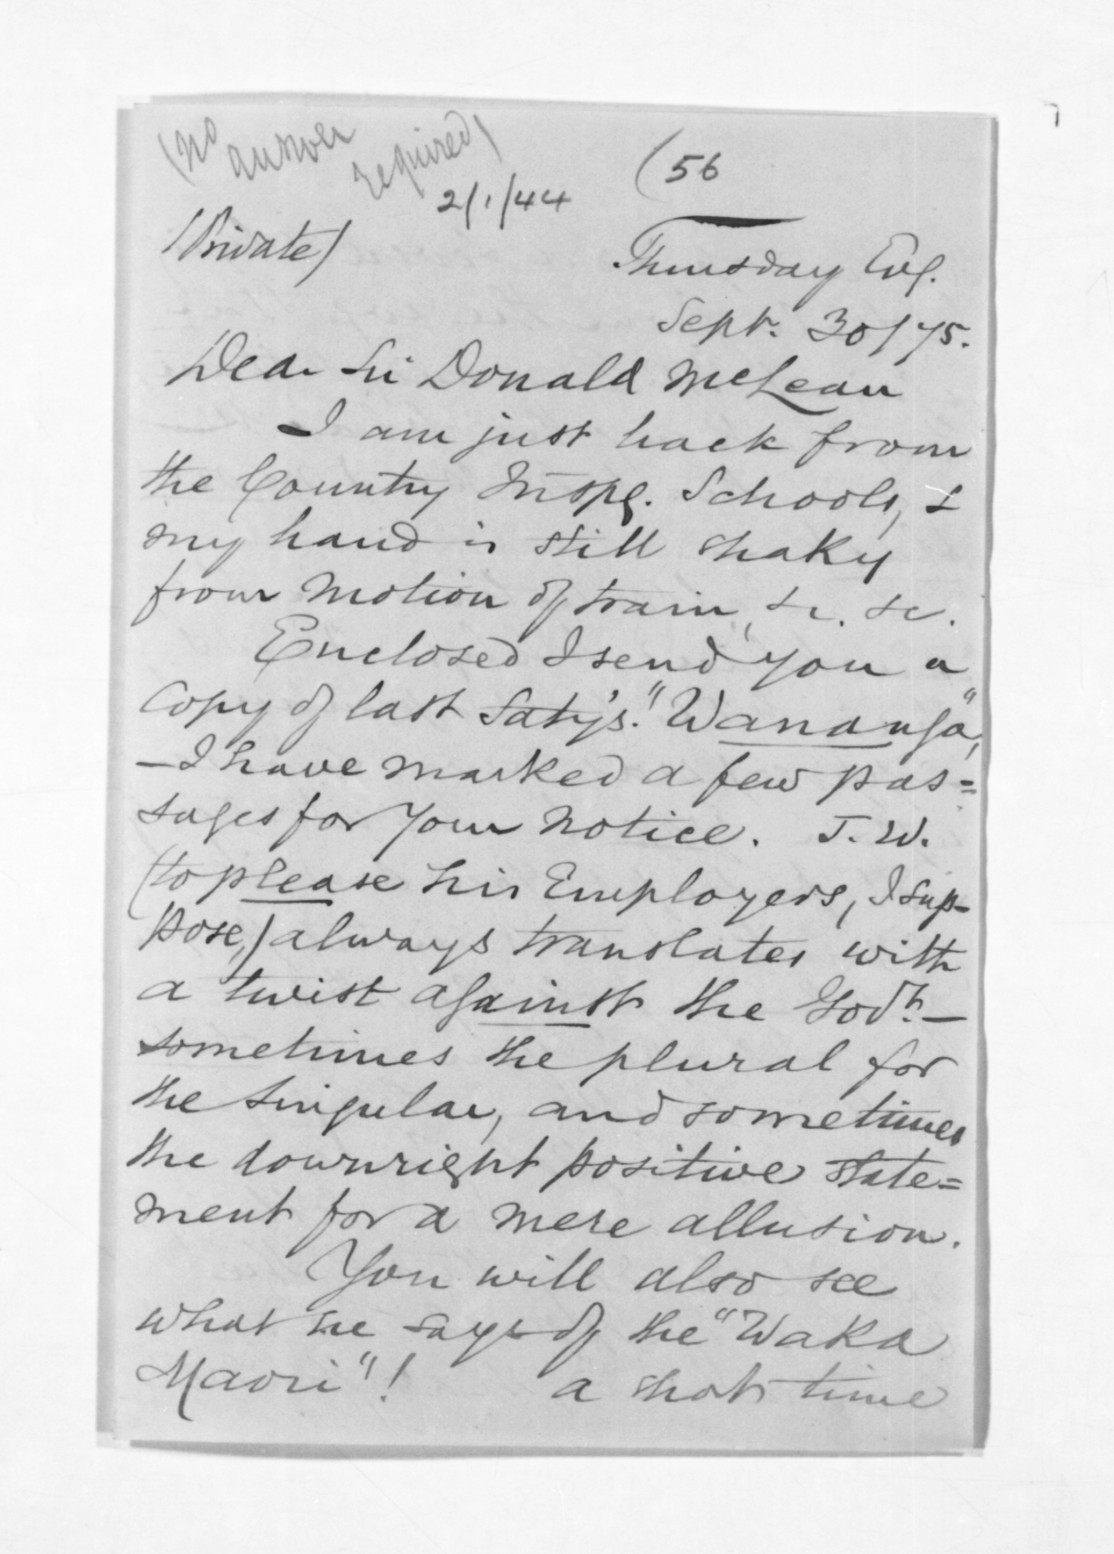 (no
answer
required)
2/1/44
(56
(Private)
Thursday Evg.
Sept. 30/75.
Dear Sir Donald McLean
I am just back from
the Country Inspg. Schools, &
my hand is still shaky
from motion of train, &c. &c.
Enclosed I send you a
copy of last Saty's. "Wananga",
—I have marked a few pas=
sages for your notice. J.W.
(to please his Employers, I sup-
pose,) always translates with
a twist against the Govt.—
sometimes the plural for
the singular, and sometimes
the downright positive state=
ment for a mere allusion.
You will also see
what he says of the "Waka
Maori"! a short time